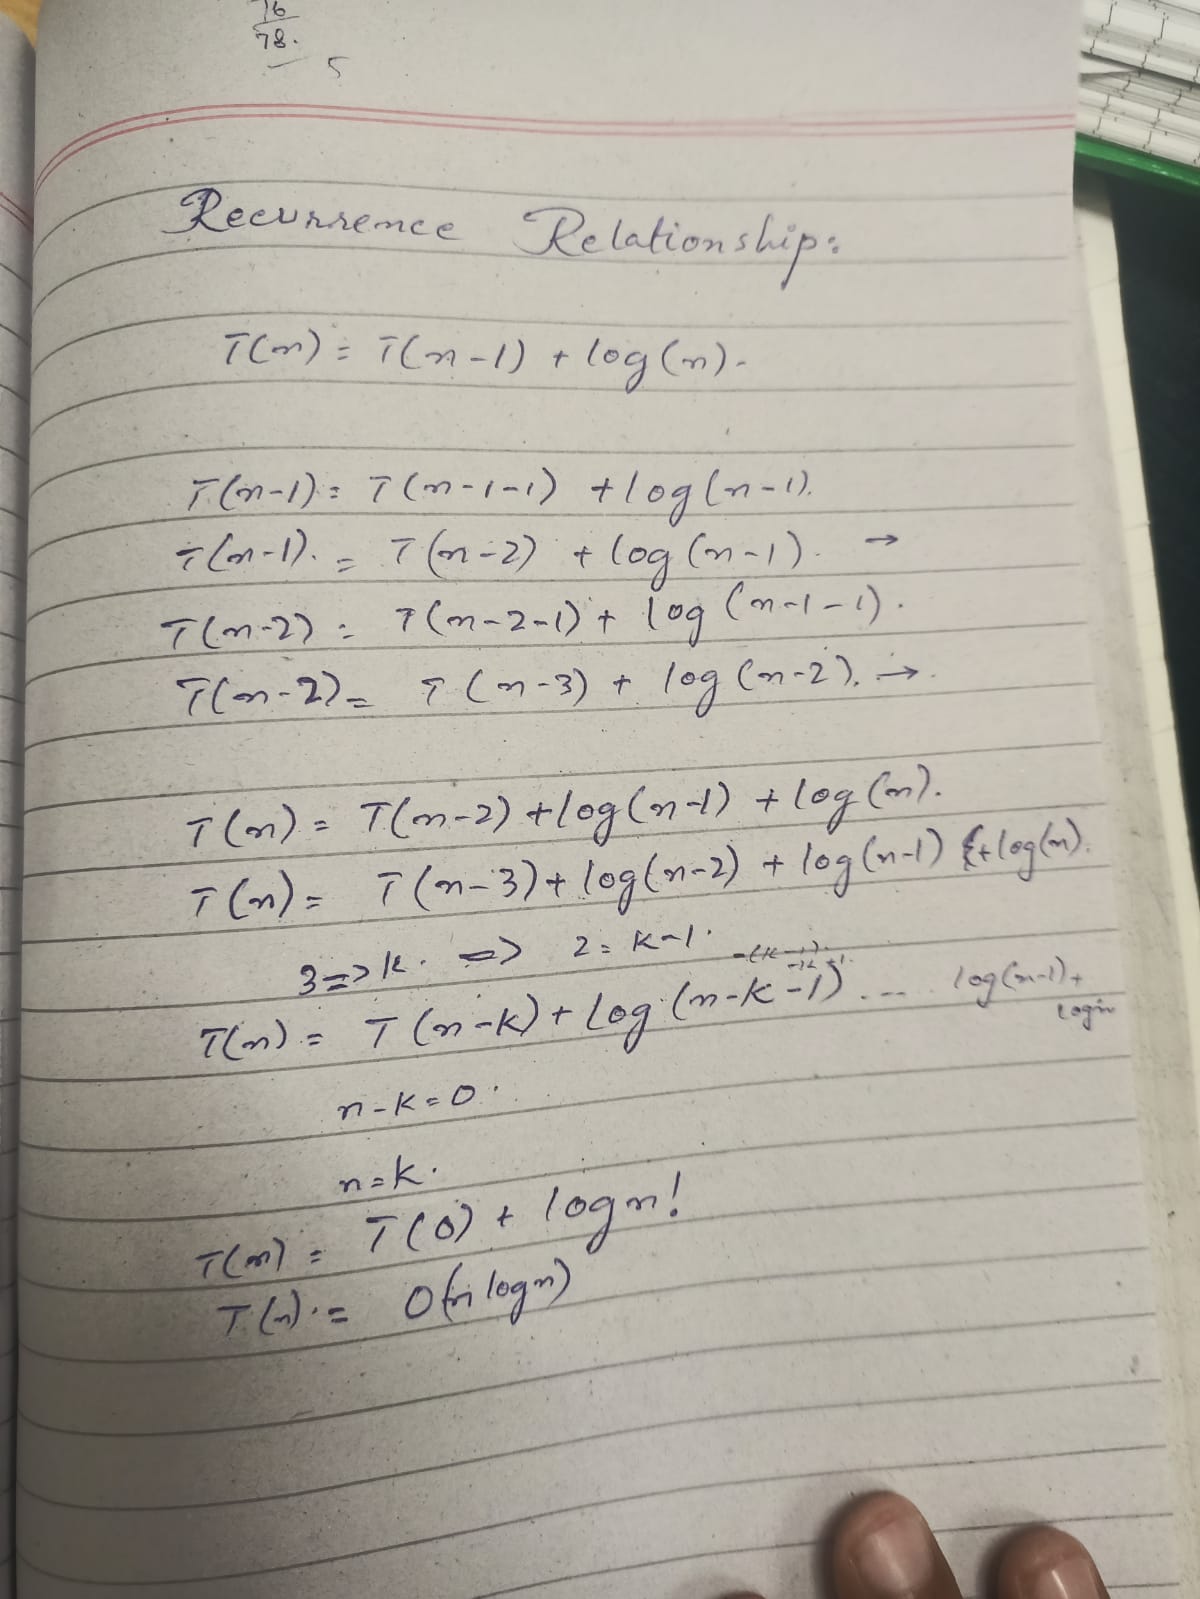 16
78.
5
Recurrence Relationship:
T(n) = T(n-1) + log(n).
T(n-1) = T(n-1-1) + log(n-1).
T(n-1). = T(n-2) + log(n-1). →
T(n-2) = T(n-2-1) + log(n-1-1).
T(n-2) = T(n-3) + log(n-2). →.
T(n) = T(n-2) + log(n-1) + log(n).
T(n) = T(n-3) + log(n-2) + log(n-1) + log(n).
3 => k. => 2 = k-1.
T(n) = T(n-k) + log(n-k-1) .... log(n-1) +
logn
n-k=0.
n=k.
T(n) = T(0) + logn!
T(n). = O(n logn)